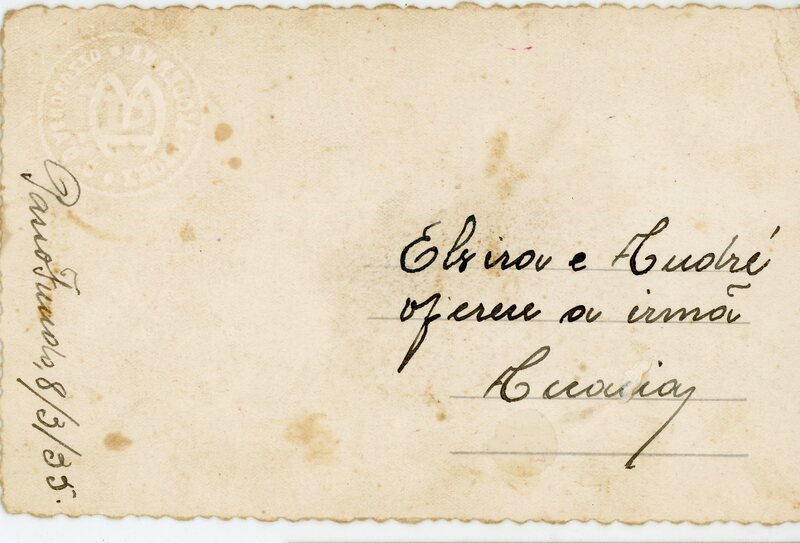 Elvira e André
oferece a irmã
Passo Fundo, 8/3/35.